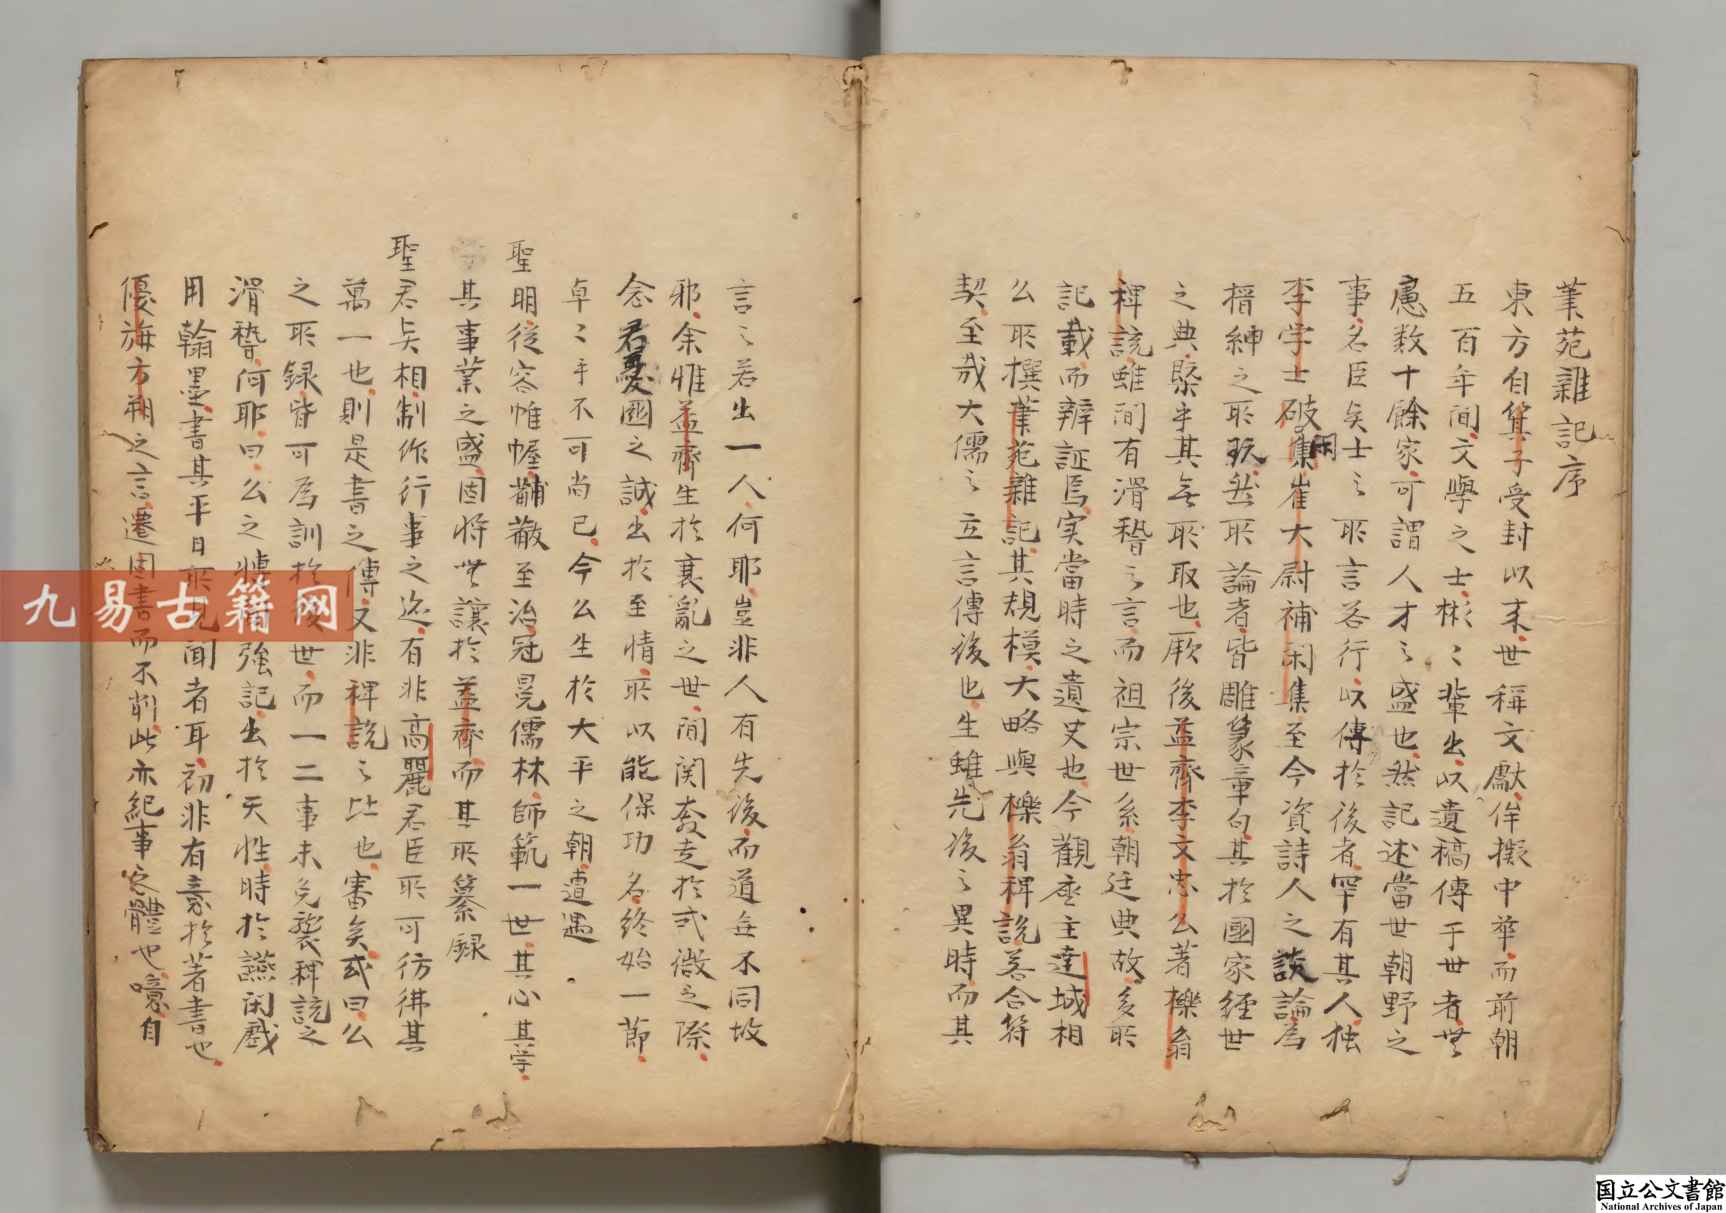 筆苑雜記序
東方自箕子受封以来世稱文獻侔擬中華而前朝
五百年間文學之士彬〻輩出以遺稿傳于世者無
慮数十餘家可謂人才之盛也然記述當世朝野之
事名臣矣士之所言若行以傳於後者罕有其人独
李学士破閑集崔大尉補閑集至今資詩人之談論為
搢紳之所玩然所論者皆雕篆章句其於國家經世
之典槩乎其無所取也厥後益齊李文忠公著櫟翁
稗説雖間有滑稽之言而祖宗世系朝廷典故多所
記載而辨証焉实當時之遺史也今觀座主達城相
公所撰筆苑雜記其規模大略與櫟翁稗説若合符
契至哉大儒之立言傳後也生雖先後之異時而其
言之若出一人何耶豈非人有先後而道無不同故
邪余惟益齊生於衰亂之世間関奔走於式微之際
念君憂國之誠出於至情所以能保功名終始一節
卓〻乎不可尚已今公生於大平之朝遭遇
聖明從容帷幄黼黻至治冠冕儒林師範一世其心其学
其事業之盛固將無讓於益齊而其所纂録
聖君矣相制作行事之迹有非高麗君臣所可彷彿其
萬一也則是書之傳又非稗説之比也審矣或曰公
之所録皆可為訓於後世而一二事未免襲稗説之
滑稽何耶曰公之博聞強記出於天性時於讌閑戲
用翰墨書其平日所見聞者耳初非有意於著書也
優旃方朔之言遷固書而不削此亦紀事之體也噫自
九易古籍网
国立公文書館
National Archives of Japan